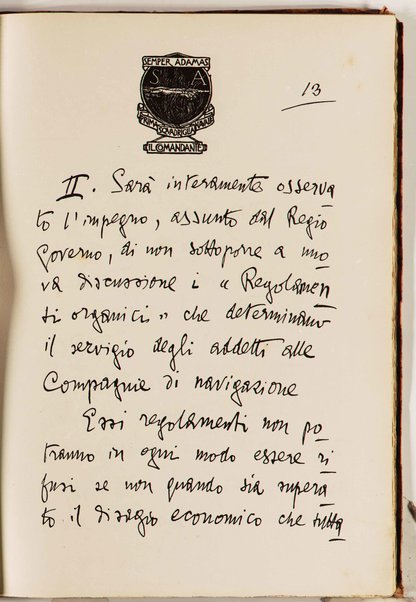 SEMPER ADAMAS
S A
PRIMA SQUADRIGLIA NAVALE
IL COMANDANTE
13
II. Sarà interamente osserva
to l'impegno, assunto dal Regio
Governo, di non sottoporre a nuo
va discussione i « Regolamen
ti organici » che determinano
il servigio degli addetti alle
Compagnie di navigazione
Essi regolamenti non po
tranno in ogni modo essere ri
fusi se non quando sia supera
to il disagio economico che tutta